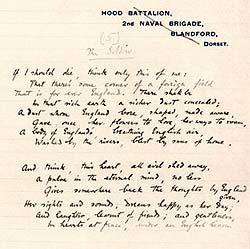 HOOD BATTALION,
2ND NAVAL BRIGADE,
BLANDFORD,
DORSET.
(5)
The Soldier
If I should die, think only this of me:
That there's some corner of a foreign field
That is for ever England. There shall be
In that rich earth a richer dust concealed;
A dust whom England bore, shaped, made aware,
Gave, once, her flowers to love, her ways to roam,
A body of England's, breathing English air,
Washed by the rivers, blest by suns of home.
And think, this heart, all evil shed away,
A pulse in the eternal mind, no less
Gives somewhere back the thoughts by England given;
Her sights and sounds; dreams happy as her day;
And laughter, learnt of friends; and gentleness,
In hearts at peace, under an English heaven.